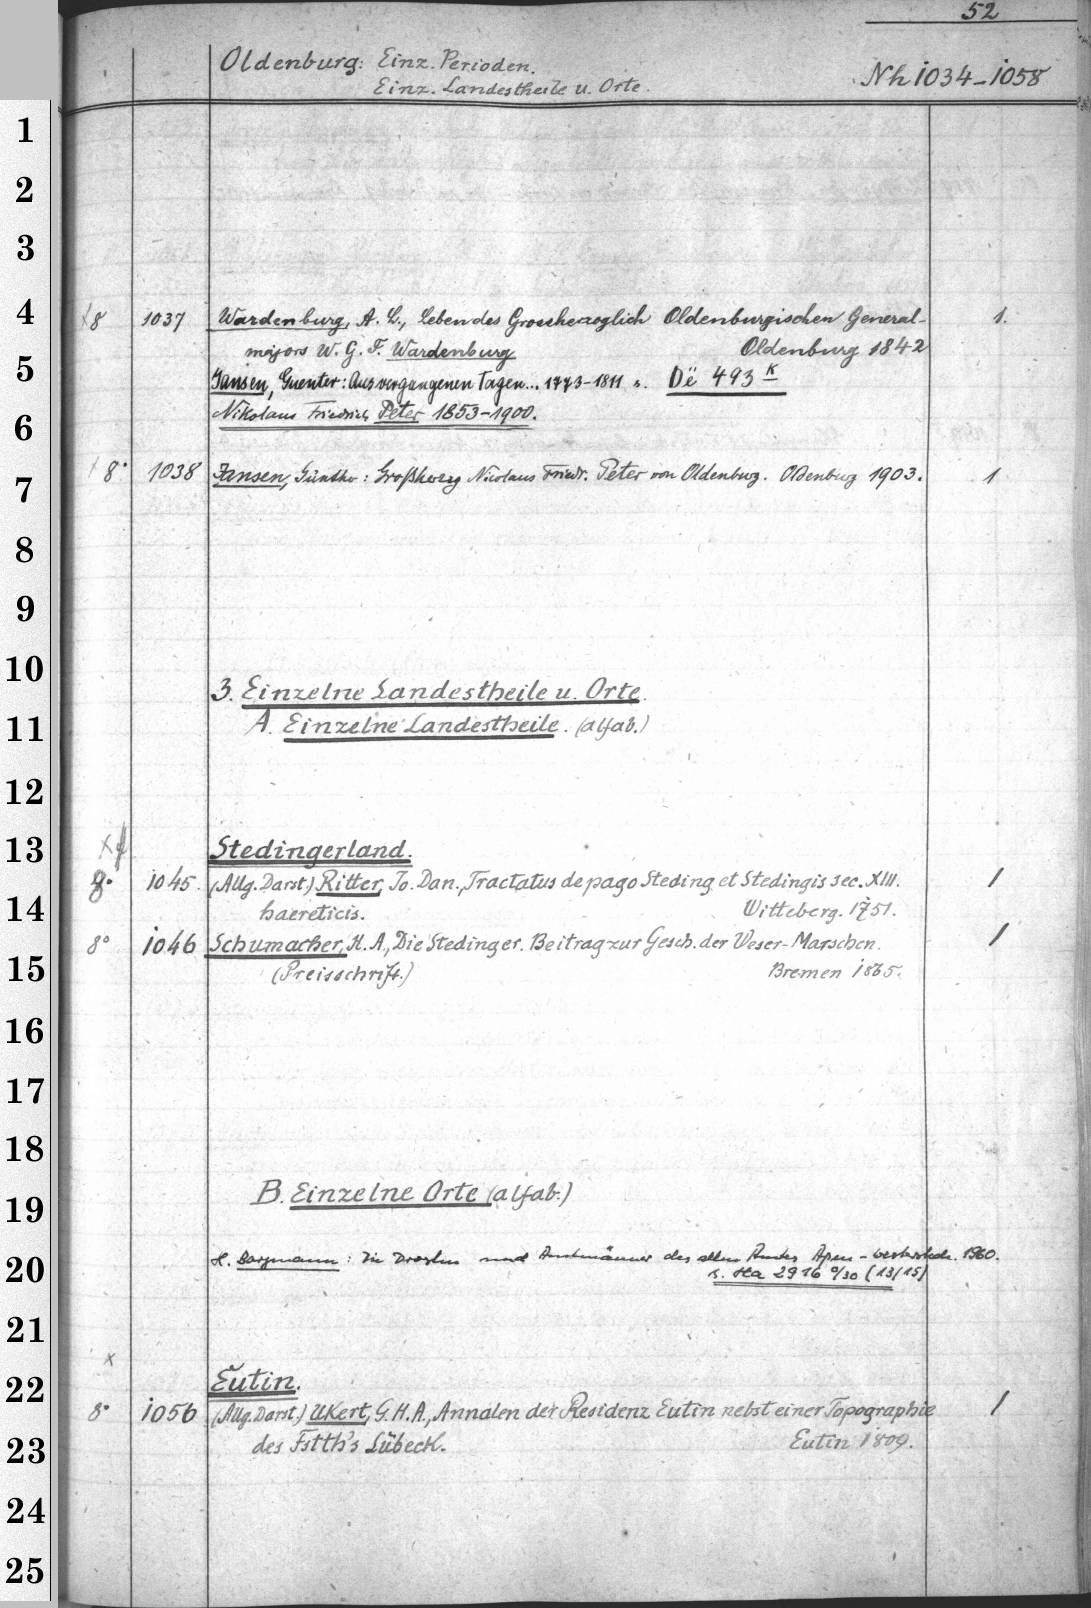 52
Oldenburg: Einz. Perioden.
Einz. Landestheile u. Orte.
Nh 1034-1058
1
2
3
4
X8 1037 Wardenburg, A. L., Leben des Grossherzoglich Oldenburgischen General- 1.
majors W. G. F. Wardenburg Oldenburg 1842
5
Jansen, Guenter: Aus vergangenen Tagen... 1773-1811 s. Dë 493 K
6
Nikolaus Friedrich Peter 1853-1900.
7
8° 1038 Jansen, Günther: Großherzog Nicolaus Friedr. Peter von Oldenburg. Oldenburg 1903. 1
8
9
10
3. Einzelne Landestheile u. Orte.
11
A. Einzelne Landestheile. (alfab.)
12
13
Stedingerland.
8° 1045. (Allg. Darst.) Ritter, Jo. Dan., Tractatus de pago Steding et Stedingis sec. XIII. 1
14
haereticis. Witteberg. 1751.
8° 1046 Schumacher, H. A., Die Stedinger. Beitrag zur Gesch. der Weser-Marschen. 1
15
(Preisschrift.) Bremen 1865.
16
17
18
19
B. Einzelne Orte (alfab.)
20
H. Borgmann: Die Drosten und Amtmänner des alten Amtes Apen-Westerstede. 1960.
s. Ha 2916 a/30 (13/15)
21
x
22
Eutin.
8° 1056 (Allg. Darst.) Ukert, G. H. A., Annalen der Residenz Eutin nebst einer Topographie 1
23
des Fstth's Lübeck. Eutin 1809.
24
25